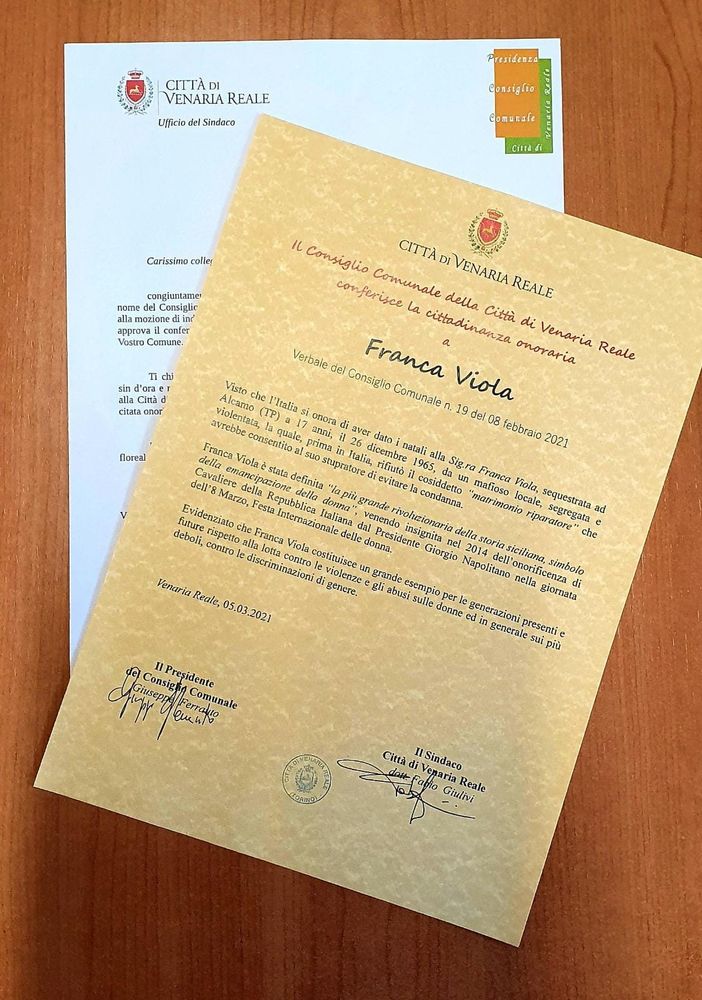 CITTÀ DI
VENARIA REALE
Ufficio del Sindaco
Presidenza
Consiglio
Comunale
Città di
Venaria Reale
Carissimo colleg
congiuntamen
nome del Consiglio
alla mozione di ind
approva il confer
Vostro Comune.
Ti chi
sin d'ora e
alla Città d
citata onor
floreal
CITTÀ DI VENARIA REALE
Il Consiglio Comunale della Città di Venaria Reale
conferisce la cittadinanza onoraria
a
Franca Viola
Verbale del Consiglio Comunale n. 19 del 08 febbraio 2021
Visto che l'Italia si onora di aver dato i natali alla Sig.ra Franca Viola, sequestrata ad
Alcamo (TP) a 17 anni, il 26 dicembre 1965, da un mafioso locale, segregata e
violentata, la quale, prima in Italia, rifiutò il cosiddetto "matrimonio riparatore" che
avrebbe consentito al suo stupratore di evitare la condanna.
Franca Viola è stata definita "la più grande rivoluzionaria della storia siciliana, simbolo
della emancipazione della donna", venendo insignita nel 2014 dell'onorificenza di
Cavaliere della Repubblica Italiana dal Presidente Giorgio Napolitano nella giornata
dell'8 Marzo, Festa Internazionale delle donna.
Evidenziato che Franca Viola costituisce un grande esempio per le generazioni presenti e
future rispetto alla lotta contro le violenze e gli abusi sulle donne ed in generale sui più
deboli, contro le discriminazioni di genere.
Venaria Reale, 05.03.2021
Il Presidente
del Consiglio Comunale
Giuseppe Ferrauto
CITTÀ DI VENARIA REALE
(TORINO)
Il Sindaco
Città di Venaria Reale
dott. Fabio Giulivi